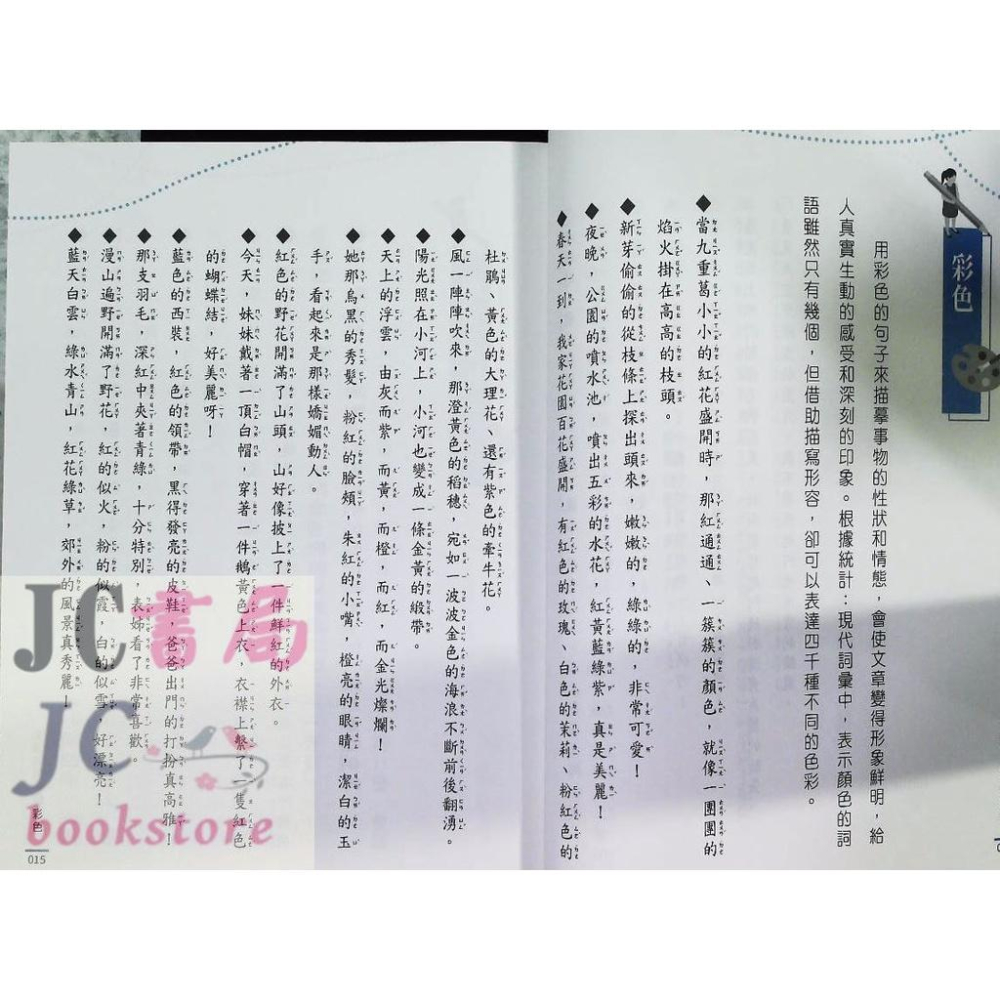 彩色
用彩色的句子來描摹事物的性狀和情態，會使文章變得形象鮮明，給
人真實生動的感受和深刻的印象。根據統計：現代詞彙中，表示顏色的詞
語雖然只有幾個，但借助描寫形容，卻可以表達四千種不同的色彩。
◆當九重葛小小的紅花盛開時，那紅通通、一簇簇的顏色，就像一團團的
焰火掛在高高的枝頭。
◆新芽偷偷的從枝條上探出頭來，嫩嫩的，綠綠的，非常可愛！
◆夜晚，公園的噴水池，噴出五彩的水花，紅黃藍綠紫，真是美麗！
◆春天一到，我家花園百花盛開，有紅色的玫瑰、白色的茉莉、粉紅色的
杜鵑、黃色的大理花、還有紫色的牽牛花。
◆風一陣陣吹來，那澄黃色的稻穗，宛如一波波金色的海浪不斷前後翻湧。
◆陽光照在小河上，小河也變成一條金黃的緞帶。
◆天上的浮雲，由灰而紫，而黃，而橙，而紅，而金光燦爛！
◆她那烏黑的秀髮，粉紅的臉頰，朱紅的小嘴，橙亮的眼睛，潔白的玉
手，看起來是那樣嬌媚動人。
◆紅色的野花開滿了山頭，山好像披上了一件鮮紅的外衣。
◆今天，妹妹戴著一頂白帽，穿著一件鵝黃色上衣，衣襟上繫了一隻紅色
的蝴蝶結，好美麗呀！
◆藍色的西裝，紅色的領帶，黑得發亮的皮鞋，爸爸出門的打扮真高雅！
◆那支羽毛，深紅中夾著青綠，十分特別，表姊看了非常喜歡。
◆漫山遍野開滿了野花，紅的似火，粉的似霞，白的似雪，好漂亮！
◆藍天白雲，綠水青山，紅花綠草，郊外的風景真秀麗！
彩色
015
JC書局
JC
bookstore